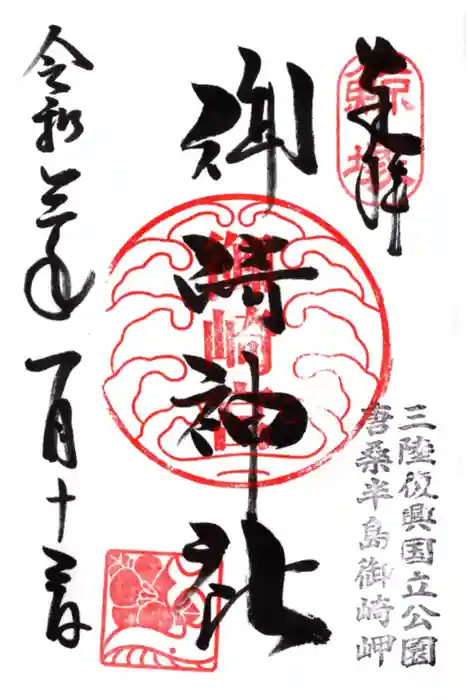 奉拝
鯨塚
三陸復興国立公園
唐桑半島御崎岬
御崎神社
御崎神社
令和三年一月十三日